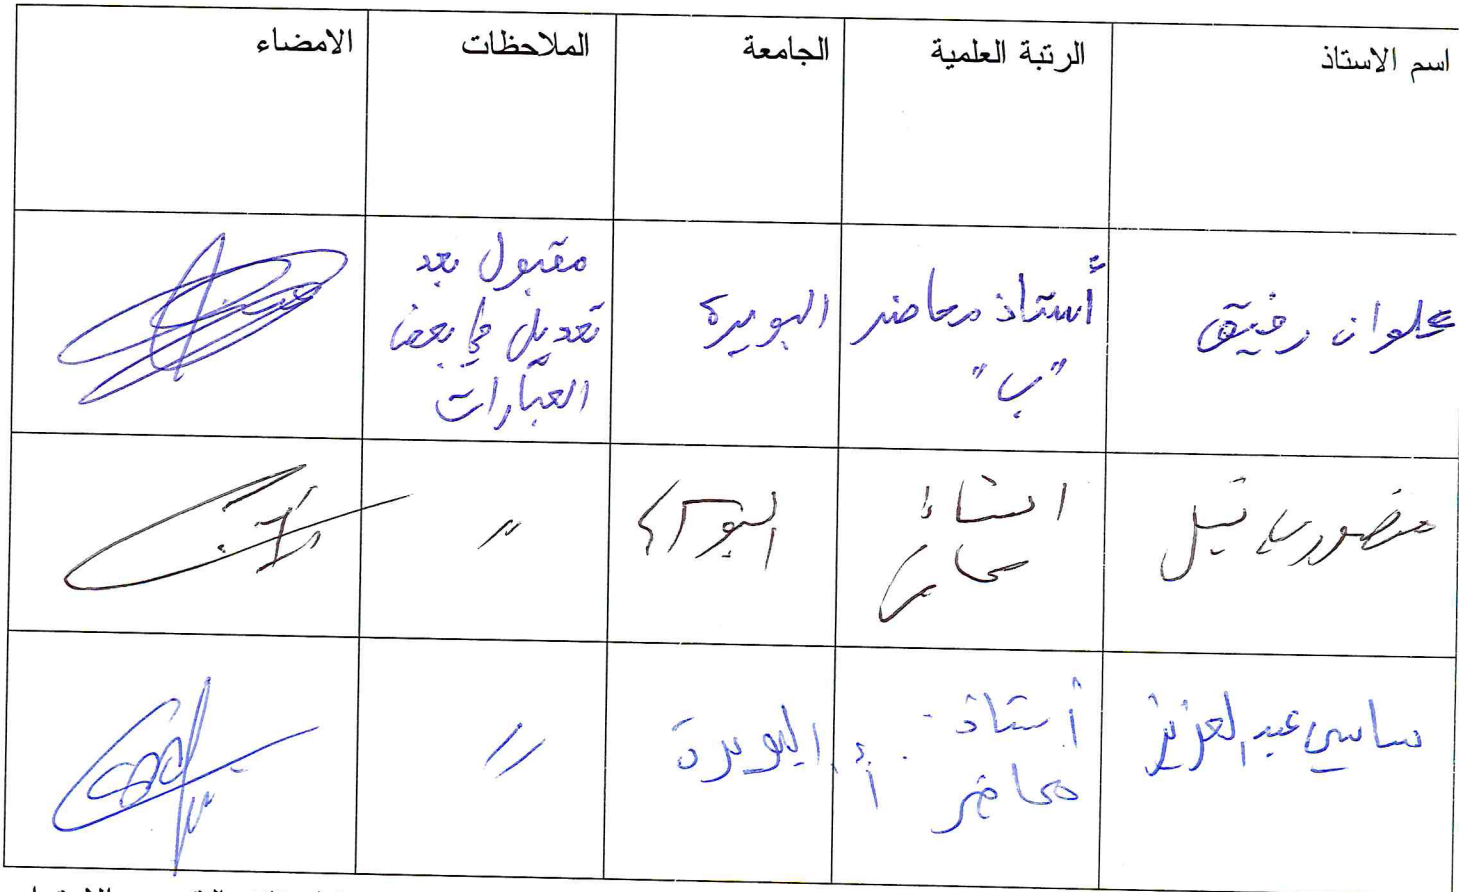 اسم الاستاذ الرتبة العلمية الجامعة الملاحظات الامضاء
علوان رفيق أستاذ محاضر "ب" البويرة مقبول بعد تعديل في بعض العبارات
البويرة "
ساسي عبد العزيز أستاذ محاضر أ البويرة "